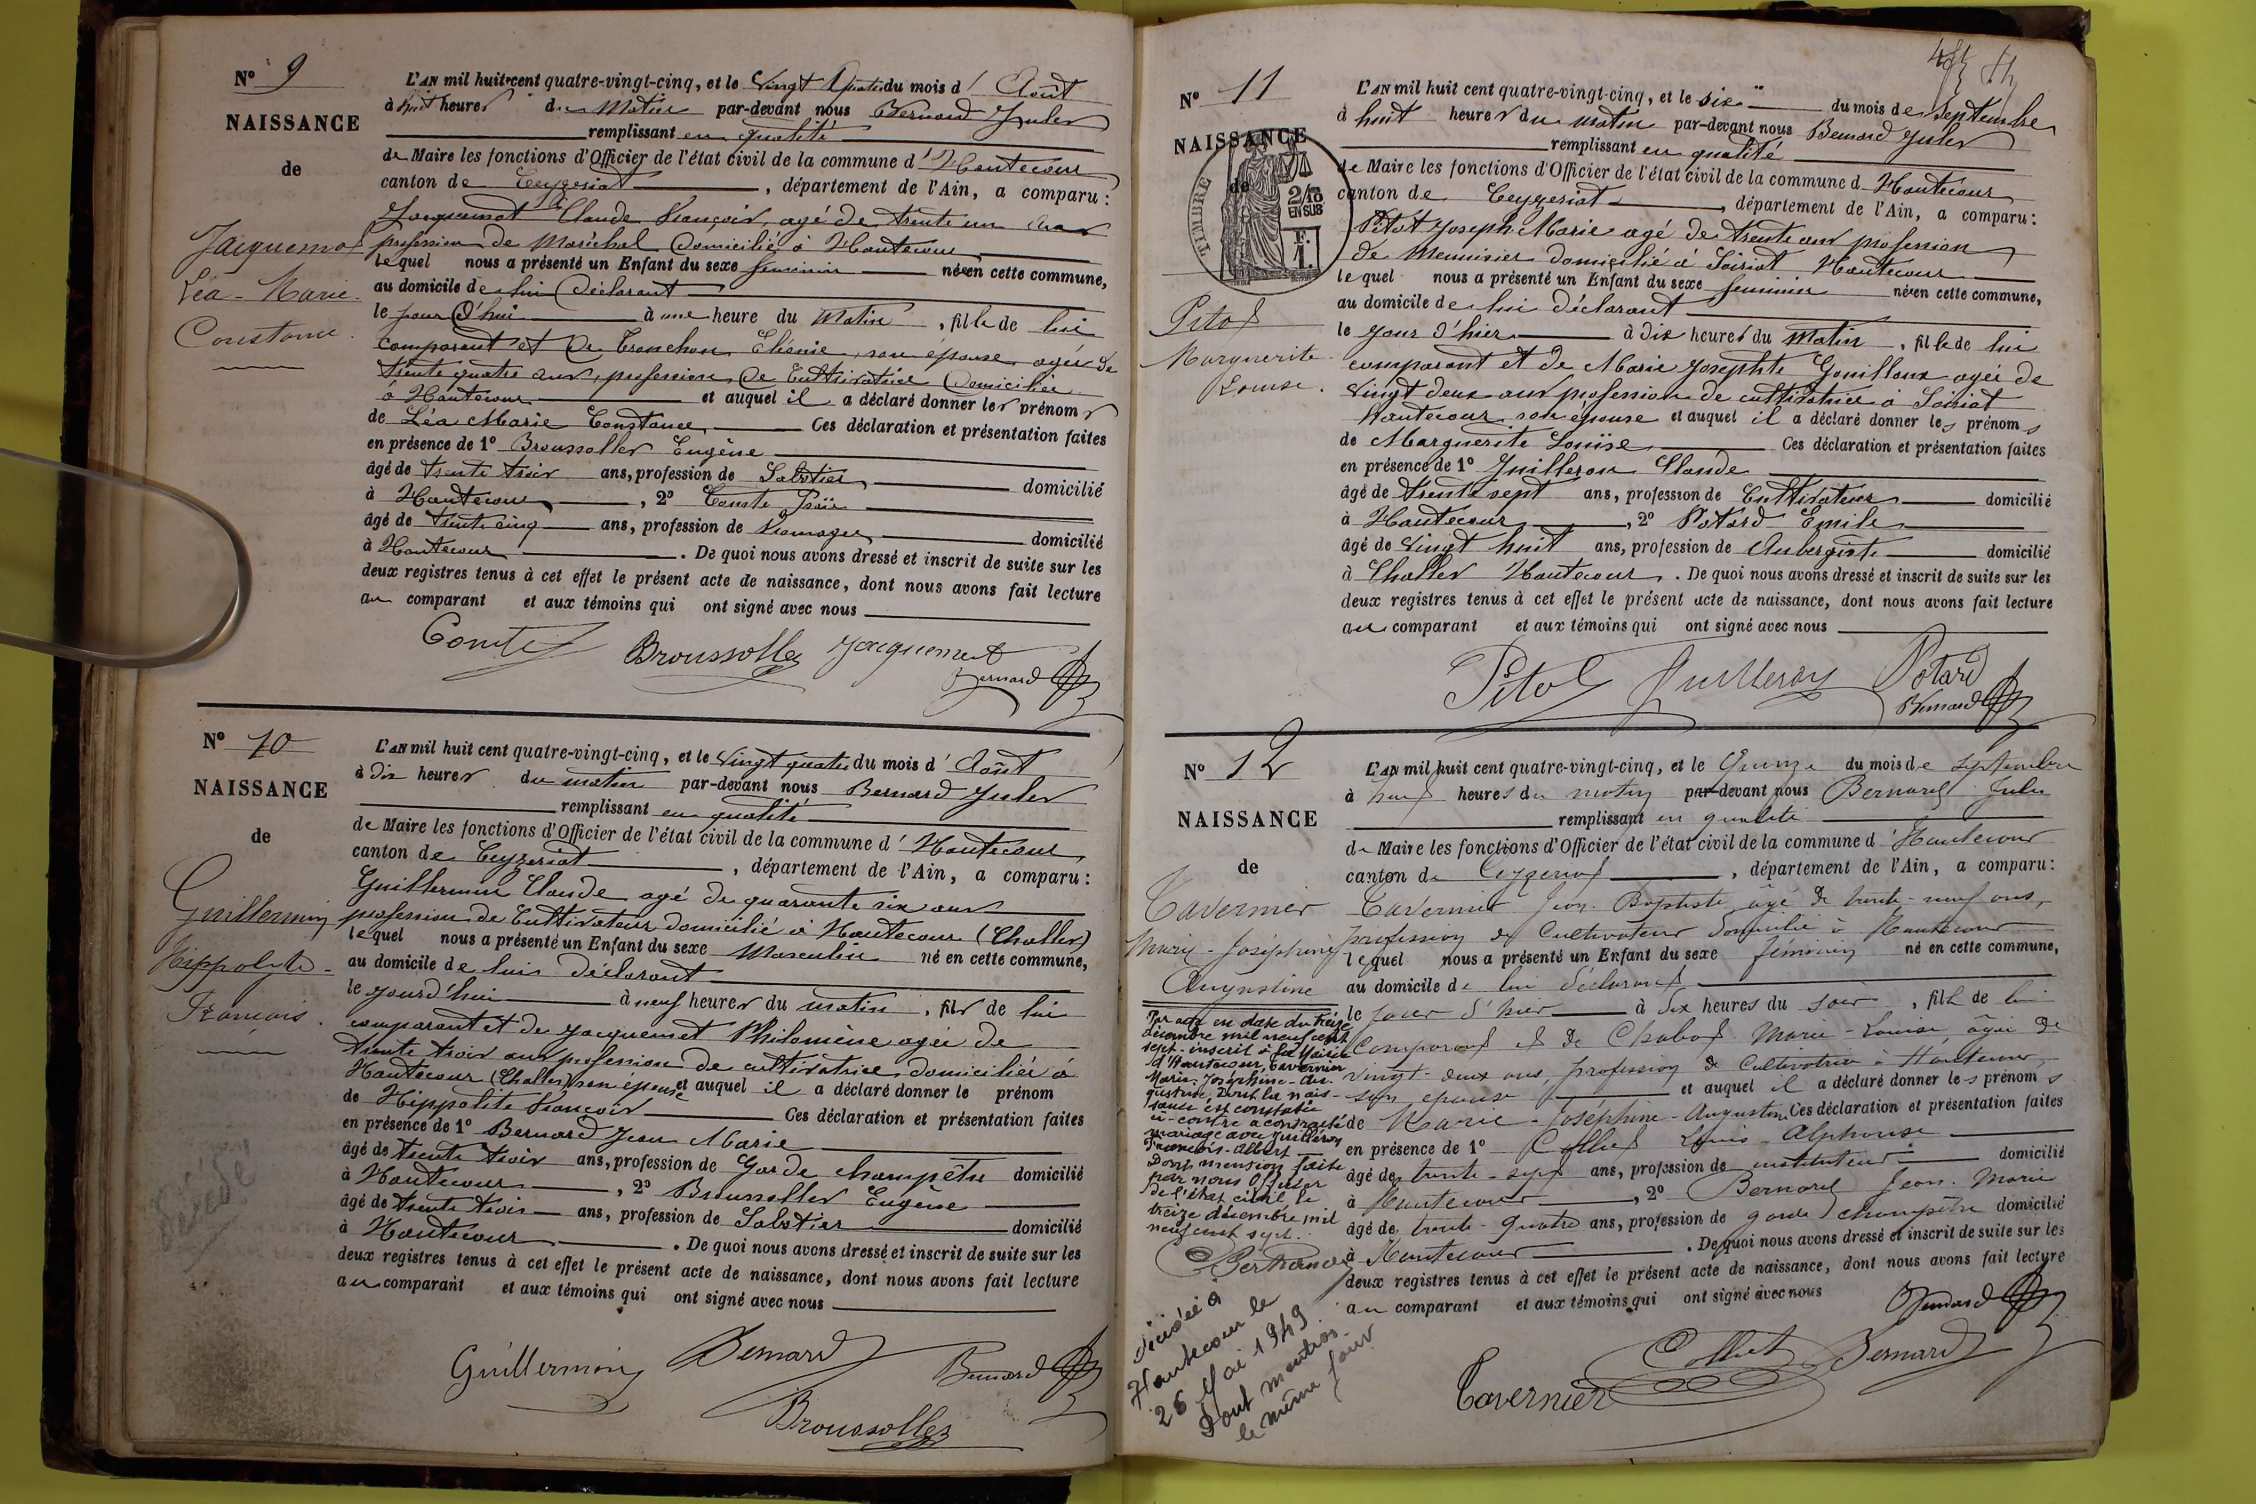 N° 9
NAISSANCE
de
Jacquemot
Léa - Marie -
Constance.
L'AN mil huit cent quatre-vingt-cinq, et le Vingt Quatre du mois d' Août
à huit heures du Matin par-devant nous Bernard Jules
remplissant en qualité
de Maire les fonctions d'Officier de l'état civil de la commune d' Hautecour
canton de Ceyzeriat, département de l'Ain, a comparu:
Jacquemot Claude François agé de trente un ans
profession de Maréchal Domicilié à Hautecour
lequel nous a présenté un Enfant du sexe féminin née en cette commune,
au domicile de lui Déclarant
le jour D'hui à une heure du Matin, fille de lui
comparant et de Tranchon, son épouse agée de
trente quatre ans, profession de Cultivatrice Domiciliée
à Hautecour et auquel il a déclaré donner les prénoms
de Léa Marie Constance Ces déclaration et présentation faites
en présence de 1° Broussolles Eugène
âgé de trente trois ans, profession de Sabotier domicilié
à Hautecour, 2° Comte
âgé de trente cinq ans, profession de Fromager domicilié
à Hautecour. De quoi nous avons dressé et inscrit de suite sur les
deux registres tenus à cet effet le présent acte de naissance, dont nous avons fait lecture
au comparant et aux témoins qui ont signé avec nous
Comte Broussolles Jacquemot
Bernard
N° 10
NAISSANCE
de
Guillermin
Hippolyte -
François.
Décédé
L'AN mil huit cent quatre-vingt-cinq, et le Vingt quatre du mois d' Août
à dix heures du matin par-devant nous Bernard Jules
remplissant en qualité
de Maire les fonctions d'Officier de l'état civil de la commune d' Hautecour
canton de Ceyzeriat, département de l'Ain, a comparu:
Guillermin Claude agé de quarante six ans
profession de Cultivateur domicilié à Hautecour (Challes)
lequel nous a présenté un Enfant du sexe Masculin né en cette commune,
au domicile de lui déclarant
le jourd'hui à neuf heures du matin, fils de lui
comparant et de Jacquemet Philomène agée de
trente trois ans profession de cultivatrice domiciliée à
Hautecour (Challes) son épouse et auquel il a déclaré donner le prénom
de Hippolite François Ces déclaration et présentation faites
en présence de 1° Bernard Jean Marie
âgé de trente trois ans, profession de Garde champêtre domicilié
à Hautecour, 2° Broussolles Eugène
âgé de trente trois ans, profession de Sabotier domicilié
à Hautecour. De quoi nous avons dressé et inscrit de suite sur les
deux registres tenus à cet effet le présent acte de naissance, dont nous avons fait lecture
au comparant et aux témoins qui ont signé avec nous
Guillermin Bernard Bernard
Broussolles
N° 11
NAISSANCE
de
TIMBRE
2/10
EN SUS
F.
1.
Pitot
Marguerite
Louise.
L'AN mil huit cent quatre-vingt-cinq, et le six du mois de Septembre
à huit heures du matin par-devant nous Bernard Jules
remplissant en qualité
de Maire les fonctions d'Officier de l'état civil de la commune d Hautecour
canton de Ceyzeriat, département de l'Ain, a comparu:
Pitot Joseph Marie agé de trente ans profession
de Menuisier domicilié à Soiriat Hautecour
lequel nous a présenté un Enfant du sexe féminin née en cette commune,
au domicile de lui déclarant
le jour d'hier à dix heures du Matin, fille de lui
comparant et de Marie Josephte Gouilloux agée de
vingt deux ans profession de cultivatrice à Soiriat
Hautecour son épouse et auquel il a déclaré donner les prénoms
de Marguerite Louise Ces déclaration et présentation faites
en présence de 1° Guilleron Claude
âgé de trente sept ans, profession de Cultivateur domicilié
à Hautecour, 2° Potard Emile
âgé de vingt huit ans, profession de Aubergiste domicilié
à Challes Hautecour. De quoi nous avons dressé et inscrit de suite sur les
deux registres tenus à cet effet le présent acte de naissance, dont nous avons fait lecture
au comparant et aux témoins qui ont signé avec nous
Pitot Guilleron Potard
Bernard
N° 12
NAISSANCE
de
Tavernier
Marie - Joséphine
Augustine
Par acte en date du treize
décembre mil neuf cent
sept inscrit à la Mairie
d'Hautecour, Tavernier
Marie-Joséphine-Au-
gustine, dont la nais-
sance est constatée
ci-contre a contracté
mariage avec Guilleron
François-Albert
Dont mention faite
par nous Officier
de l'état civil le
treize décembre mil
neuf cent sept.
Décédée à
Hautecour le
26 Mai 1949
Dont mention
le même jour
L'AN mil huit cent quatre-vingt-cinq, et le Quinze du mois de septembre
à heures du matin par-devant nous Bernard Jules
remplissant en qualité
de Maire les fonctions d'Officier de l'état civil de la commune d' Hautecour
canton de Ceyzeriat, département de l'Ain, a comparu:
Tavernier Jean Baptiste, âgé de trente-neuf ans,
profession de Cultivateur domicilié à Hautecour
lequel nous a présenté un Enfant du sexe féminin né en cette commune,
au domicile de lui déclarant
le jour d'hier à dix heures du soir, fille de lui
comparant et de Chabot Marie-Louise, âgée de
vingt-deux ans, profession de Cultivatrice à Hautecour,
son épouse et auquel il a déclaré donner les prénoms
de Marie-Joséphine-Augustine Ces déclaration et présentation faites
en présence de 1° Collet Louis-Alphonse
âgé de trente-sept ans, profession de instituteur domicilié
à Hautecour, 2° Bernard Jean-Marie
âgé de trente-quatre ans, profession de garde champêtre domicilié
à Hautecour. De quoi nous avons dressé et inscrit de suite sur les
deux registres tenus à cet effet le présent acte de naissance, dont nous avons fait lecture
au comparant et aux témoins qui ont signé avec nous
Bernard
Collet Bernard
Tavernier